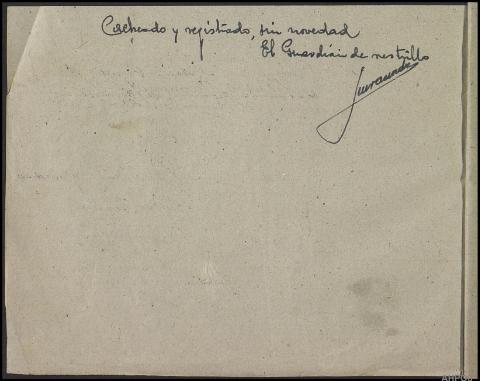 Cacheado y registrado, sin novedad
El Guardián de rastrillo